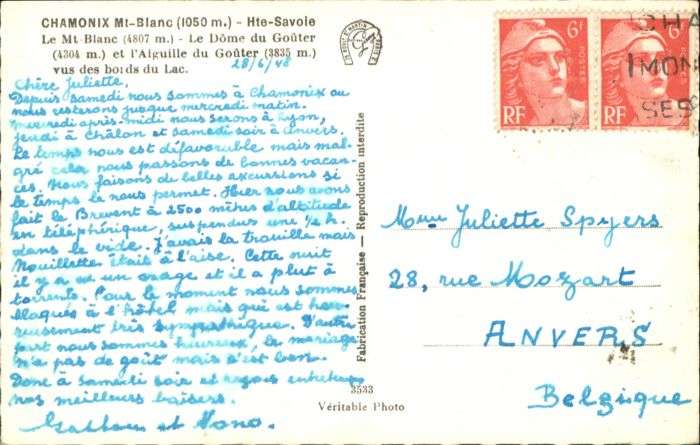 CHAMONIX Mt-Blanc (1050 m.) - Hte-Savoie
Le Mt-Blanc (4807 m.) - Le Dôme du Goûter
(4304 m.) et l'Aiguille du Goûter (3835 m.)
vus des bords du Lac.
28/6/48
Chère Juliette.
Depuis samedi nous sommes à Chamonix ou
nous resterons jusque mercredi matin.
Mercredi après midi nous serons à Lyon,
jeudi à Châlon et samedi soir à Anvers.
Le temps nous est défavorable mais mal-
gré cela nous passons de bonnes vacan-
ces. Nous faisons de belles excursions si
le temps le nous permet. Hier nous avons
fait le Brevent à 2500 mètres d'altitude
en téléphérique, suspendus une ½ h.
dans le vide. J'avais la trouille mais
Nouillette était à l'aise. Cette nuit
il y a eu un orage et il a plut à
torrents. Pour le moment nous sommes
bloqués à l'hôtel mais qui est heu-
reusement très sympathique. D'autre
part nous sommes heureux, le mariage
n'a pas de goût mais c'est bon.
Donc à samedi soir et reçois entretemps
nos meilleurs baisers.
et Nono.
Fabrication Française — Reproduction interdite
3533
Véritable Photo
6F
POSTES
RF
6F
POSTES
RF
CHA
MON
SES
Mme Juliette Spyers
28, rue Mozart
ANVERS
Belgique